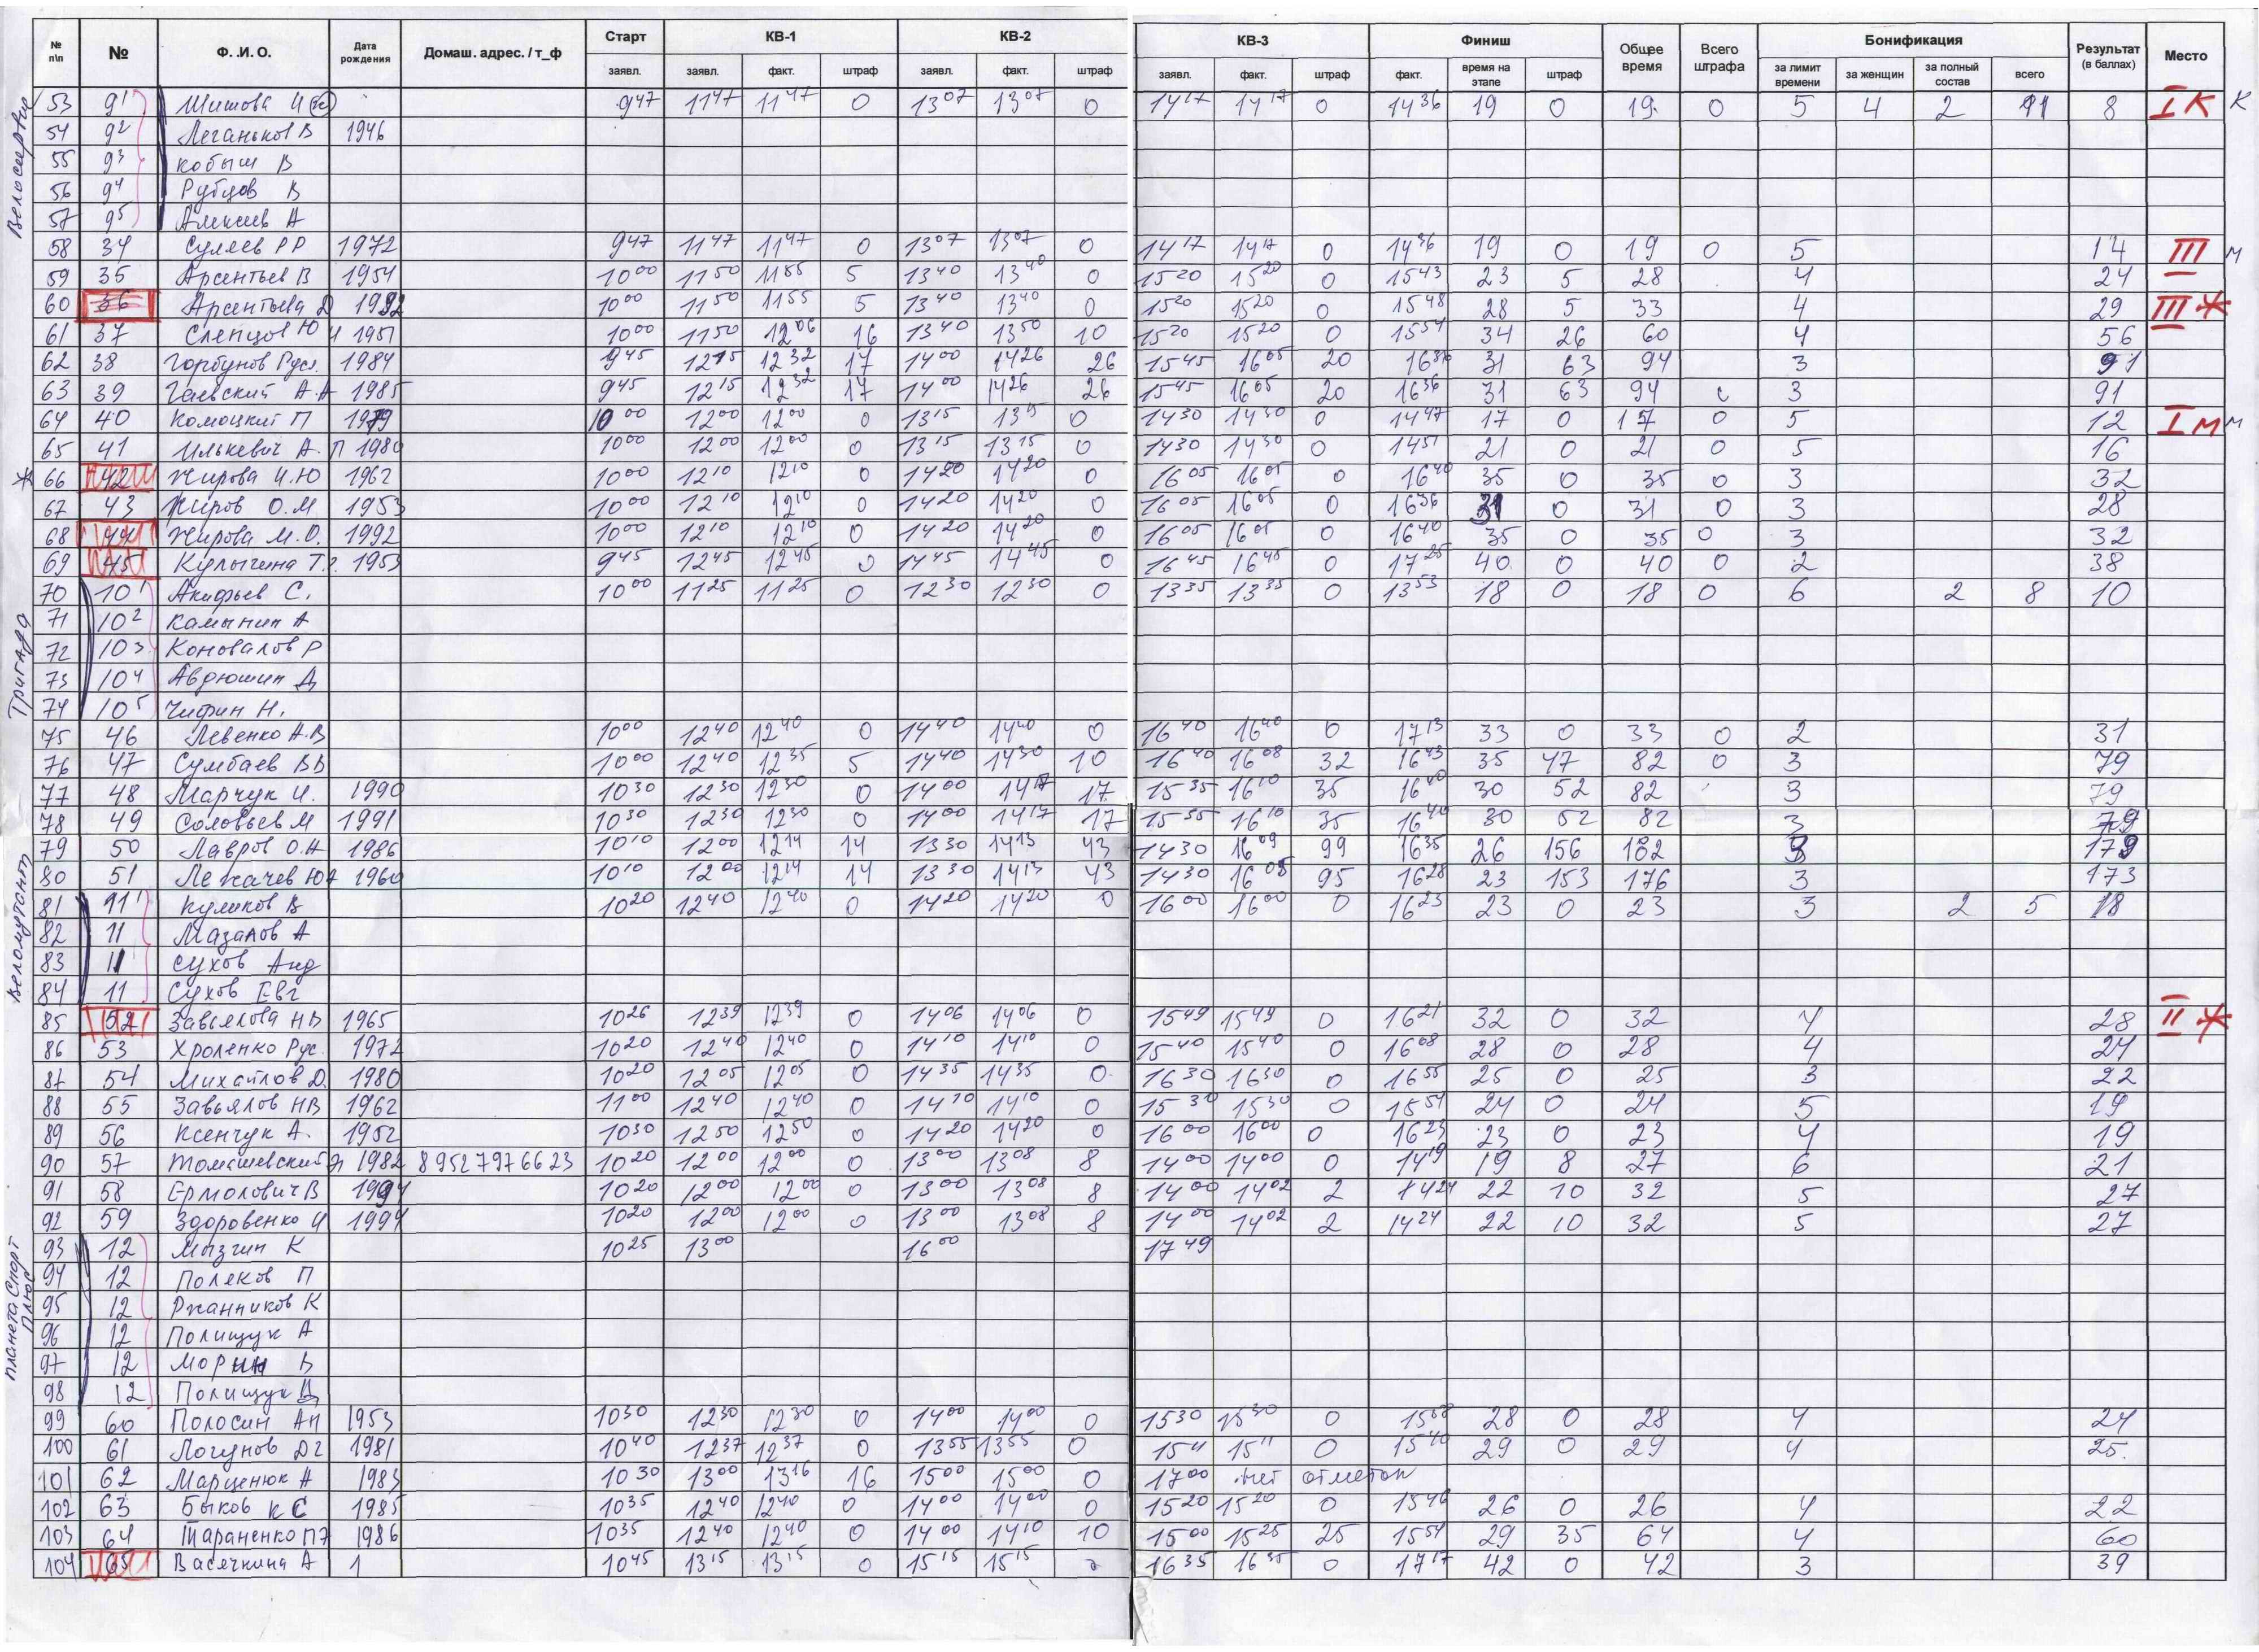 № п\п № Ф. .И. О. Дата рождения Домаш. адрес. / т_ф Старт КВ-1 КВ-2 КВ-3 Финиш Общее время Всего штрафа Бонификация Результат (в баллах) Место
заявл. заявл. факт. штраф заявл. факт. штраф заявл. факт. штраф факт. время на этапе штраф за лимит времени за женщин за полный состав всего
53 9¹ Шишова И ж 9 47 11 47 11 47 0 13 07 13 07 0 14 17 14 17 0 14 36 19 0 19 0 5 4 2 11 8 I К К
54 9² Леганьков В 1946
55 9³ Кобыш В
56 9⁴ Рубцов В
57 9⁵ Алексеев А
58 34 Суляев РР 1972 9 47 11 47 11 47 0 13 07 13 07 0 14 17 14 17 0 14 36 19 0 19 0 5 14 III м
59 35 Арсентьев В 1954 10 00 11 50 11 55 5 13 40 13 40 0 15 20 15 20 0 15 43 23 5 28 4 24
60 36 Арсентьева Д 1992 10 00 11 50 11 55 5 13 40 13 40 0 15 20 15 20 0 15 48 28 5 33 4 29 III Ж
61 37 Слепцов Ю И 1951 10 00 11 50 12 06 16 13 40 13 50 10 15 20 15 20 0 15 54 34 26 60 4 56
62 38 Горбунов Русл. 1984 9 45 12 15 12 32 17 14 00 14 26 26 15 45 16 05 20 16 36 31 63 94 3 91
63 39 Гаевский А.А 1985 9 45 12 15 12 32 17 14 00 14 26 26 15 45 16 05 20 16 36 31 63 94 3 91
64 40 Комоцкий П 1979 10 00 12 00 12 00 0 13 15 13 15 0 14 30 14 30 0 14 47 17 0 17 0 5 12 I м м
65 41 Илькевич А.П 1980 10 00 12 00 12 00 0 13 15 13 15 0 14 30 14 30 0 14 51 21 0 21 0 5 16
ж 66 42 Жирова И.Ю 1962 10 00 12 10 12 10 0 14 20 14 20 0 16 05 16 05 0 16 40 35 0 35 0 3 32
67 43 Жиров О.М 1953 10 00 12 10 12 10 0 14 20 14 20 0 16 05 16 05 0 16 36 31 0 31 0 3 28
68 44 Жирова М.О. 1992 10 00 12 10 12 10 0 14 20 14 20 0 16 05 16 05 0 16 40 35 0 35 0 3 32
69 45 Кулыгина Т.г. 1953 9 45 12 45 12 45 0 14 45 14 45 0 16 45 16 45 0 17 25 40 0 40 0 2 38
70 10¹ Акифьев С. 10 00 11 25 11 25 0 12 30 12 30 0 13 35 13 35 0 13 53 18 0 18 0 6 2 8 10
71 10² Камынин А
72 10³ Коновалов Р
73 10⁴ Авдюшин Д
74 10⁵ Чифин Н.
75 46 Левенко А.В 10 00 12 40 12 40 0 14 40 14 40 0 16 40 16 40 0 17 13 33 0 33 0 2 31
76 47 Сумбаев ВВ 10 00 12 40 12 35 5 14 40 14 30 10 16 40 16 08 32 16 43 35 47 82 0 3 79
77 48 Марчук И. 1990 10 30 12 30 12 30 0 14 00 14 17 17 15 35 16 10 35 16 40 30 52 82 3 79
78 49 Соловьев М 1991 10 30 12 30 12 30 0 14 00 14 17 17 15 35 16 10 35 16 40 30 52 82 3 79
79 50 Лавров О.А 1986 10 10 12 00 12 14 14 13 30 14 13 43 14 30 16 09 99 16 35 26 156 182 3 179
80 51 Лежачев ЮА 1960 10 10 12 00 12 14 14 13 30 14 13 43 14 30 16 05 95 16 28 23 153 176 3 173
81 11¹ Куликов В 10 20 12 40 12 40 0 14 20 14 20 0 16 00 16 00 0 16 23 23 0 23 3 2 5 18
82 11 Мазалов А
83 11 Сухов Анд
84 11 Сухов Евг
85 52 Завьялова НВ 1965 10 26 12 39 12 39 0 14 06 14 06 0 15 49 15 49 0 16 21 32 0 32 4 28 II Ж
86 53 Хроленко Рус. 1972 10 20 12 40 12 40 0 14 10 14 10 0 15 40 15 40 0 16 08 28 0 28 4 24
87 54 Михайлов Д. 1980 10 20 12 05 12 05 0 14 35 14 35 0 16 30 16 30 0 16 55 25 0 25 3 22
88 55 Завьялов НВ 1962 11 00 12 40 12 40 0 14 10 14 10 0 15 30 15 30 0 15 54 24 0 24 5 19
89 56 Ксенчук А. 1952 10 30 12 50 12 50 0 14 20 14 20 0 16 00 16 00 0 16 23 23 0 23 4 19
90 57 Томашевский 1982 89527976623 10 20 12 00 12 00 0 13 00 13 08 8 14 00 14 00 0 14 19 19 8 27 6 21
91 58 Ермолович В 1994 10 20 12 00 12 00 0 13 00 13 08 8 14 00 14 02 2 14 24 22 10 32 5 27
92 59 Здоровенко И 1994 10 20 12 00 12 00 0 13 00 13 08 8 14 00 14 02 2 14 24 22 10 32 5 27
93 12 Мызгин К 10 25 13 00 16 00 17 49
94 12 Поляков П
95 12 Ржанников К
96 12 Полищук А
97 12 Морин В
98 12 Полищук Д
99 60 Полосин АН 1953 10 30 12 30 12 30 0 14 00 14 00 0 15 30 15 30 0 15 58 28 0 28 4 24
100 61 Логунов ДГ 1981 10 40 12 37 12 37 0 13 55 13 55 0 15 11 15 11 0 15 40 29 0 29 4 25
101 62 Марценюк А 1983 10 30 13 00 13 16 16 15 00 15 00 0 17 00 нет отметок
102 63 Быков КС 1985 10 35 12 40 12 40 0 14 00 14 00 0 15 20 15 20 0 15 46 26 0 26 4 22
103 64 Тараненко П 1986 10 35 12 40 12 40 0 14 00 14 10 10 15 00 15 25 25 15 54 29 35 64 4 60
104 65 Васячкина А 1 10 45 13 15 13 15 0 15 15 15 15 0 16 35 16 35 0 17 17 42 0 42 3 39
Велосирвис
Тригада
Веломутанты
планета Спорт Плюс